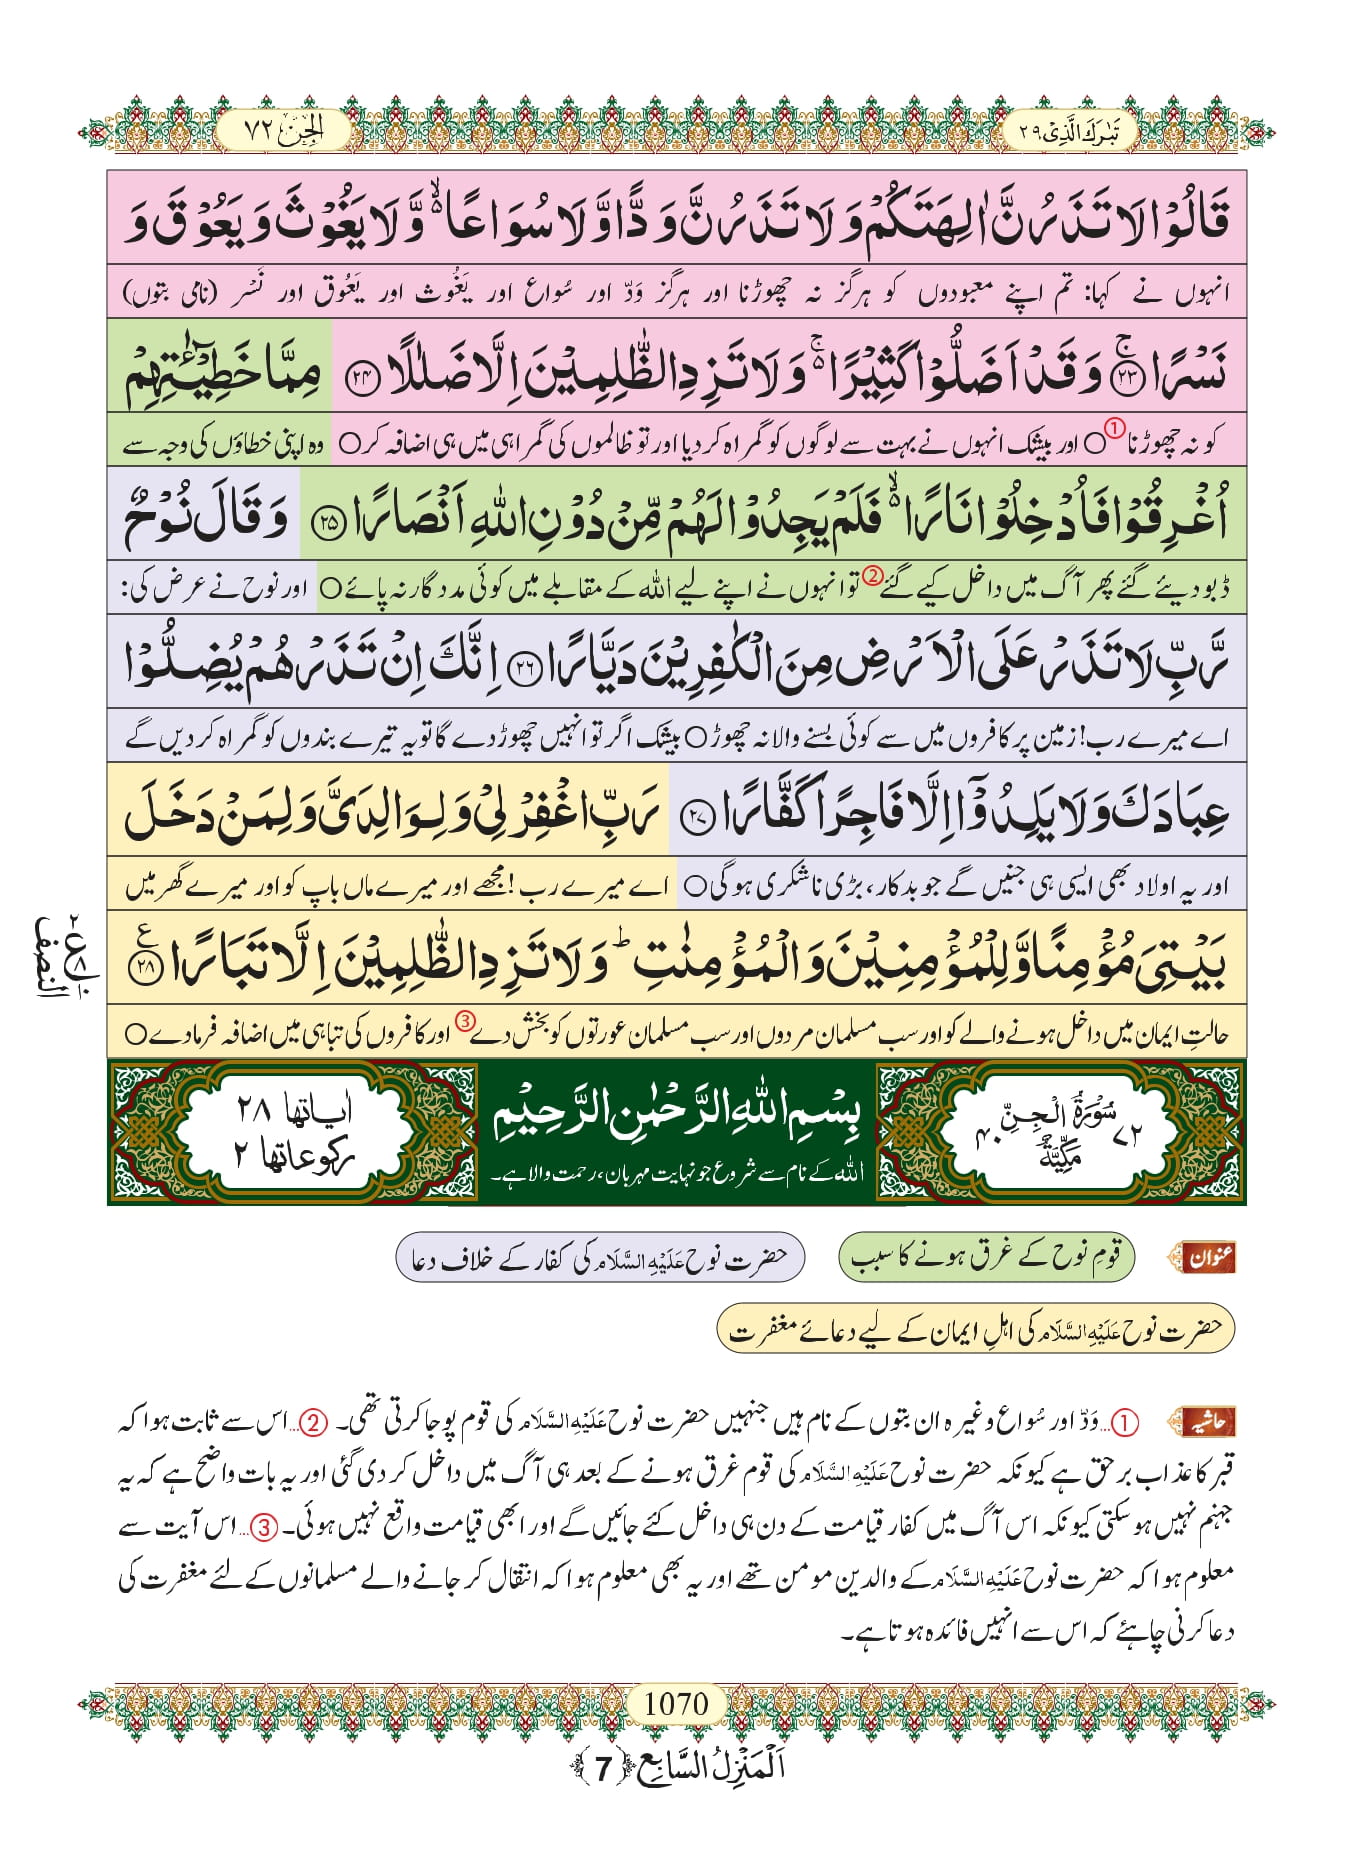 تَبٰرَكَ الَّذِیْ ۲۹
الجن ۷۲
قَالُوْا لَا تَذَرُنَّ اٰلِهَتَكُمْ وَ لَا تَذَرُنَّ وَدًّا وَّ لَا سُوَاعًا ۙ۬ وَّ لَا یَغُوْثَ وَ یَعُوْقَ وَ
انہوں نے کہا: تم اپنے معبودوں کو ہرگز نہ چھوڑنا اور ہرگز وَدّ اور سُواع اور یَغُوث اور یَعُوق اور نَسْر (نامی بتوں)
نَسْرًا ۚ﴿۲۳﴾ وَ قَدْ اَضَلُّوْا كَثِیْرًا ۚ۬ وَ لَا تَزِدِ الظّٰلِمِیْنَ اِلَّا ضَلٰلًا ﴿۲۴﴾ مِمَّا خَطِیْٓــٴٰـتِهِمْ
کو نہ چھوڑنا ① ○ اور بیشک انہوں نے بہت سے لوگوں کو گمراہ کر دیا اور تو ظالموں کی گمراہی میں ہی اضافہ کر ○ وہ اپنی خطاؤں کی وجہ سے
اُغْرِقُوْا فَاُدْخِلُوْا نَارًا ۙ۬ فَلَمْ یَجِدُوْا لَهُمْ مِّنْ دُوْنِ اللّٰهِ اَنْصَارًا ﴿۲۵﴾ وَ قَالَ نُوْحٌ
ڈبو دیئے گئے پھر آگ میں داخل کیے گئے ② تو انہوں نے اپنے لیے اللہ کے مقابلے میں کوئی مددگار نہ پائے ○ اور نوح نے عرض کی:
رَّبِّ لَا تَذَرْ عَلَى الْاَرْضِ مِنَ الْكٰفِرِیْنَ دَیَّارًا ﴿۲۶﴾ اِنَّكَ اِنْ تَذَرْهُمْ یُضِلُّوْا
اے میرے رب! زمین پر کافروں میں سے کوئی بسنے والا نہ چھوڑ ○ بیشک اگر تو انہیں چھوڑ دے گا تو یہ تیرے بندوں کو گمراہ کر دیں گے
عِبَادَكَ وَ لَا یَلِدُوْۤا اِلَّا فَاجِرًا كَفَّارًا ﴿۲۷﴾ رَبِّ اغْفِرْ لِیْ وَ لِوَالِدَیَّ وَ لِمَنْ دَخَلَ
اور یہ اولاد بھی ایسی ہی جنیں گے جو بدکار، بڑی ناشکری ہو گی ○ اے میرے رب! مجھے اور میرے ماں باپ کو اور میرے گھر میں
بَیْتِیَ مُؤْمِنًا وَّ لِلْمُؤْمِنِیْنَ وَ الْمُؤْمِنٰتِ ؕ وَ لَا تَزِدِ الظّٰلِمِیْنَ اِلَّا تَبَارًا ﴿۲۸﴾ ع
النصف
حالتِ ایمان میں داخل ہونے والے کو اور سب مسلمان مردوں اور سب مسلمان عورتوں کو بخش دے ③ اور کافروں کی تباہی میں اضافہ فرما دے ○
۷۲ سُوْرَةُ الْجِنِّ مَكِّیَّةٌ ۴۰
بِسْمِ اللّٰهِ الرَّحْمٰنِ الرَّحِیْمِ
اللہ کے نام سے شروع جو نہایت مہربان، رحمت والا ہے۔
اٰیاتها ۲۸
رکوعاتها ۲
عنوان
قومِ نوح کے غرق ہونے کا سبب
حضرت نوح عَلَیْہِ السَّلَام کی کفار کے خلاف دعا
حضرت نوح عَلَیْہِ السَّلَام کی اہلِ ایمان کے لیے دعائے مغفرت
حاشیہ
①... وَدّ اور سُواع وغیرہ ان بتوں کے نام ہیں جنہیں حضرت نوح عَلَیْہِ السَّلَام کی قوم پوجا کرتی تھی۔ ②... اس سے ثابت ہوا کہ
قبر کا عذاب برحق ہے کیونکہ حضرت نوح عَلَیْہِ السَّلَام کی قوم غرق ہونے کے بعد ہی آگ میں داخل کر دی گئی اور یہ بات واضح ہے کہ یہ
جہنم نہیں ہو سکتی کیونکہ اس آگ میں کفار قیامت کے دن ہی داخل کئے جائیں گے اور ابھی قیامت واقع نہیں ہوئی۔ ③... اس آیت سے
معلوم ہوا کہ حضرت نوح عَلَیْہِ السَّلَام کے والدین مومن تھے اور یہ بھی معلوم ہوا کہ انتقال کر جانے والے مسلمانوں کے لئے مغفرت کی
دعا کرنی چاہئے کہ اس سے انہیں فائدہ ہوتا ہے۔
1070
اَلْمَنْزِلُ السَّابِع ﴿7﴾